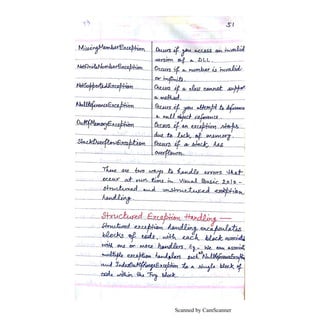 51
MissingMemberException Occurs if you access an invalid
version of a DLL.
NotFiniteNumberException Occurs if a number is invalid
or infinite.
NotSupportedException Occurs if a class cannot support
a method.
NullReferenceException Occurs if you attempt to
a null object reference.
OutOfMemoryException Occurs if an exception stops
due to lack of memory.
StackOverflowException Occurs if a stack has
overflown.
There are two ways to handle errors that
occur at run time in Visual Basic 2010-
structured and unstructured exception
handling.
Structured Exception Handling —
Structured exception handling encapsulates
blocks of code, with each block associated
with one or more handlers. Eg. We can associate
multiple exception handlers such NullReferenceException
and IndexOutOfRangeException to a single block of
code within the Try block.
Scanned by CamScanner